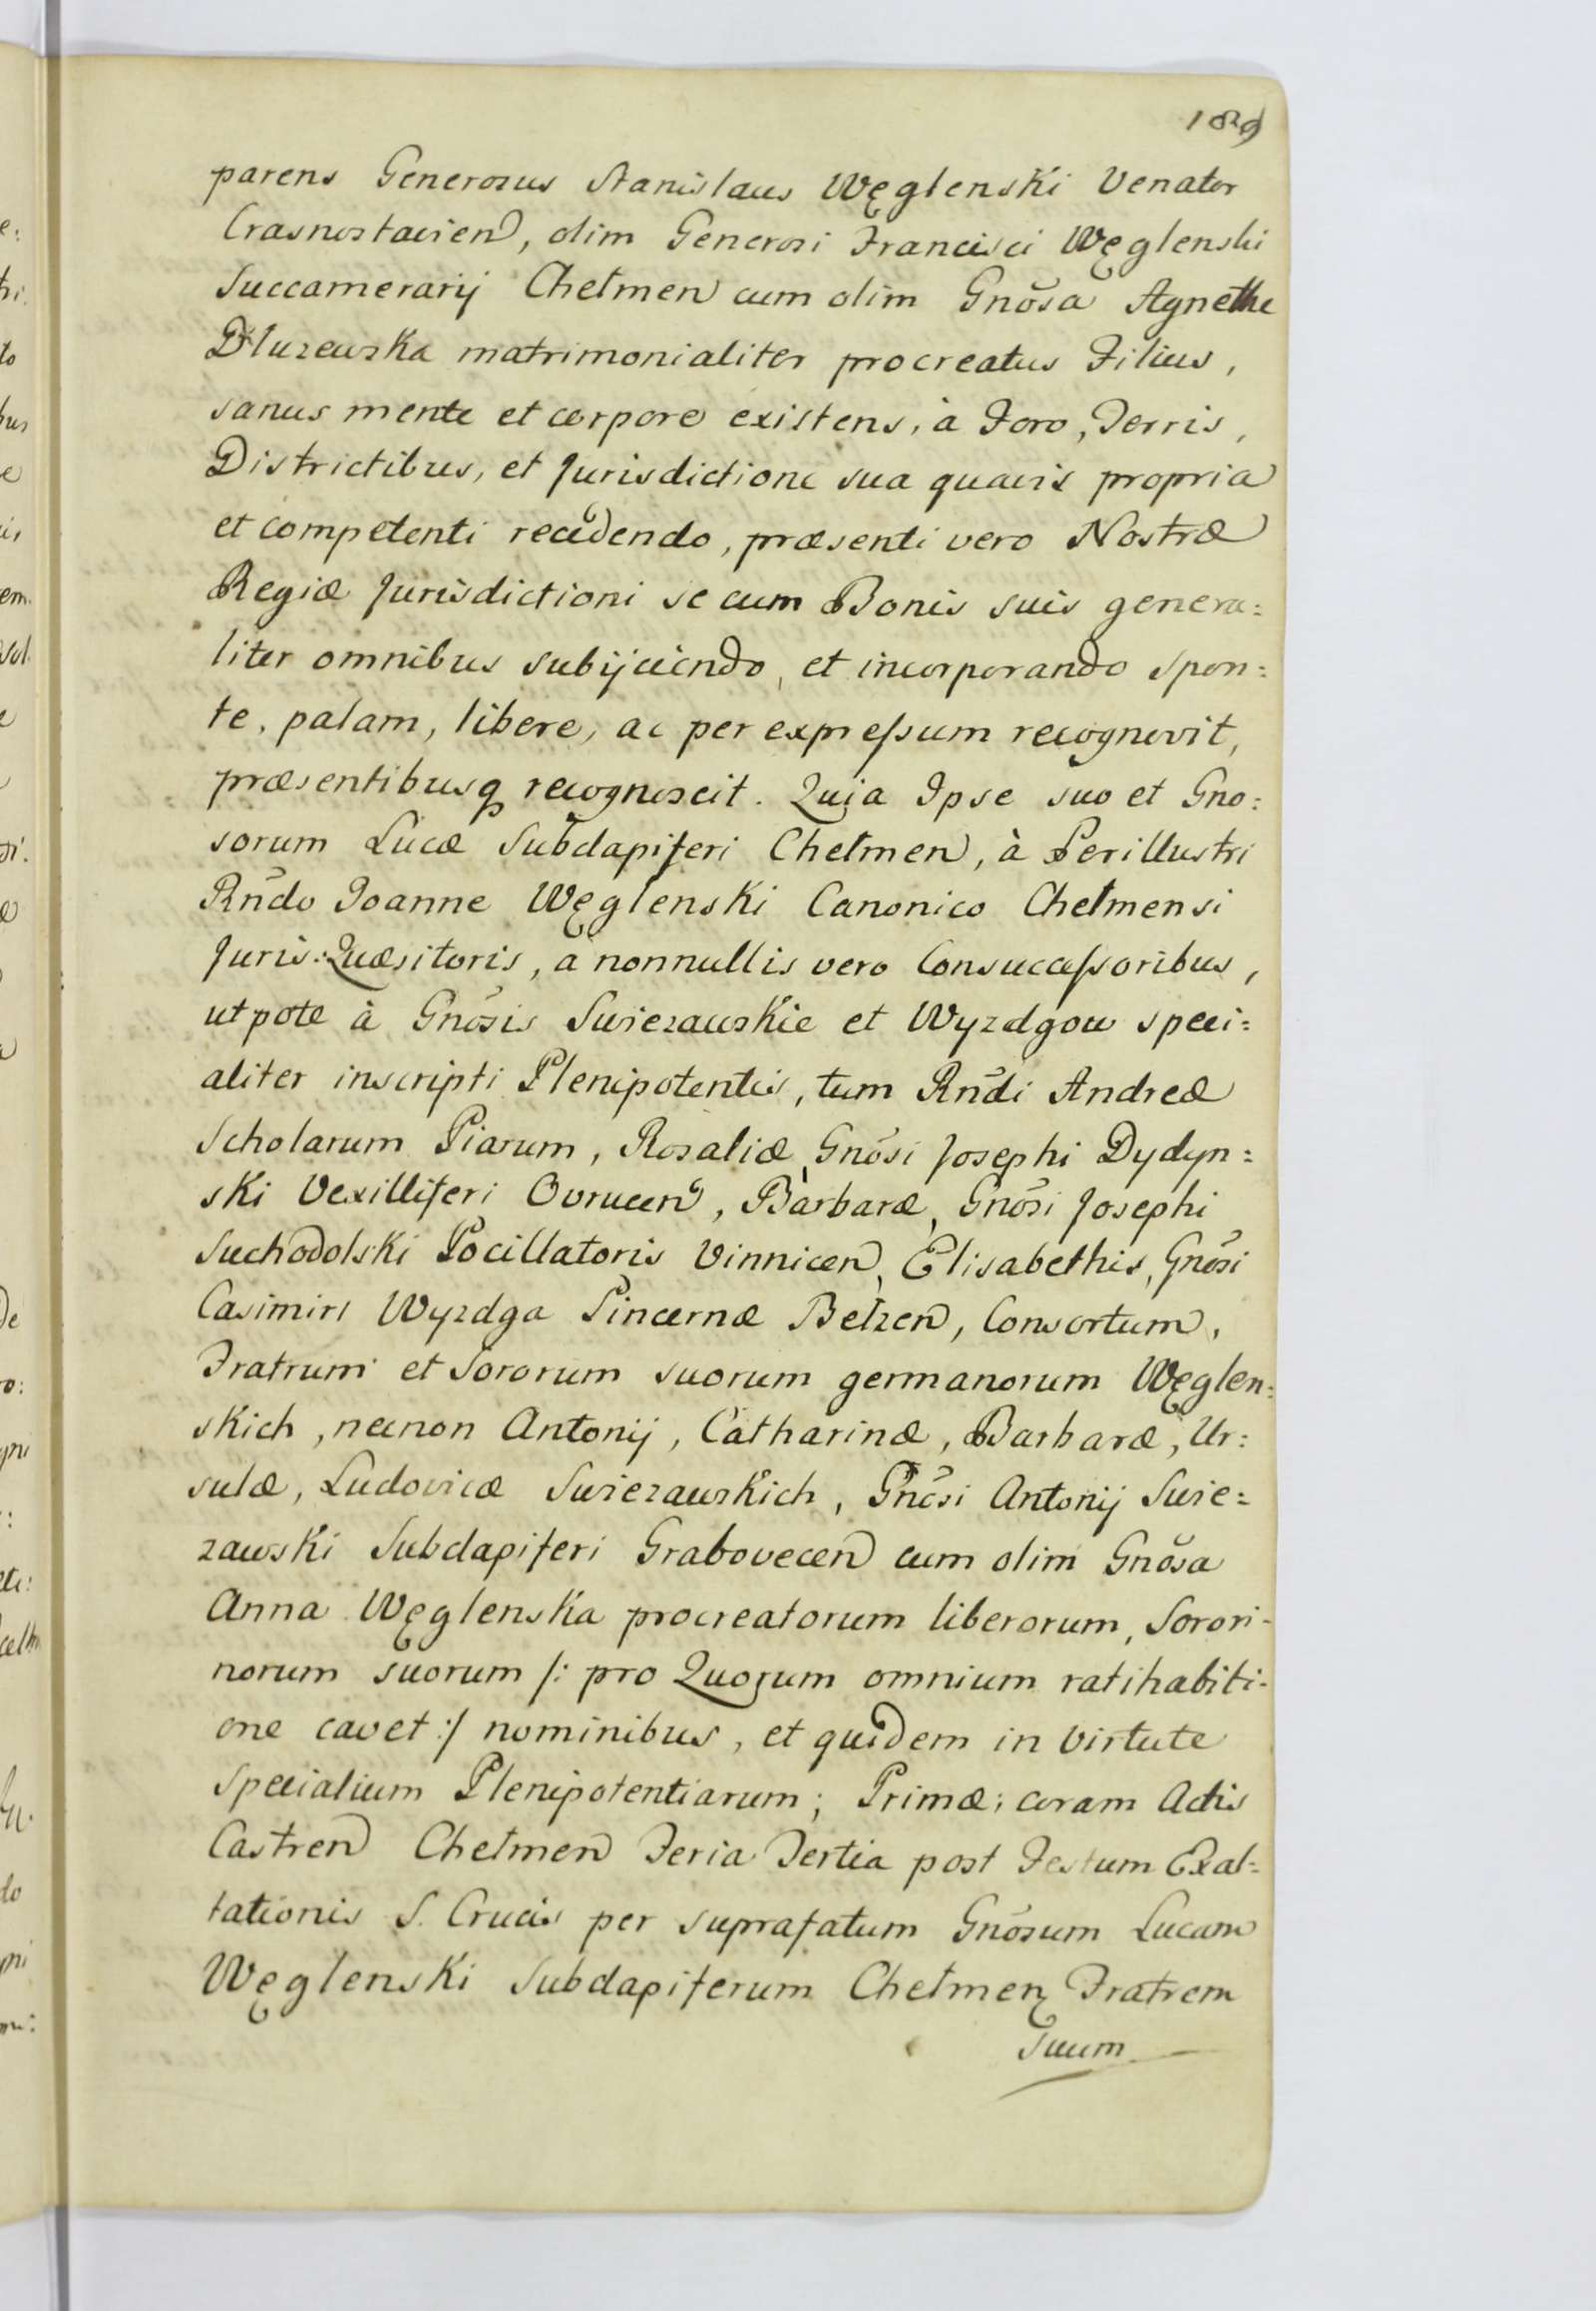 189
parens Generosus Stanislaus Węglenski Venator
Crasnostavien, olim Generosi Francisci Węglenski
Succamerarij Chełmen cum olim Gnõsa Agnethe
Dłuzewska matrimonialiter procreatus Filius,
sanus mente et corpore existens, à Foro, Terris,
Districtibus, et Jurisdictione sua quavis propria
et competenti recedendo, præsenti vero Nostræ
Regiæ Jurisdictioni se cum Bonis suis genera:
liter omnibus subijciendo, et incorporando spon:
te, palam, libere, ac per expressum recognovit,
præsentibusq recognoscit. Quia Ipse suo et Gno:
sorum Lucæ Subdapiferi Chełmen, à Perillustri
Rñdo Joanne Węglenski Canonico Chełmensi
Juris:Quæsitoris, a nonnullis vero Consuccessoribus,
utpote à Gnõsis Swiezawskie et Wyzdgow speci:
aliter inscripti Plenipotentis, tum Rñdi Andreæ
Scholarum Piarum, Rosaliæ, Gnõsi Josephi Dydyn:
ski Vexilliferi Ovrucen, Barbaræ, Gnõsi Josephi
Suchodolski Pocillatoris Vinnicen, Elisabethis, Gnõsi
Casimiri Wyzdga Pincernæ Bełzen, Consortum,
Fratrum et Sororum suorum germanorum Węglen:
skich, necnon Antonij, Catharinæ, Barbaræ, Ur:
sulæ, Ludovicæ Swiezawskich, Gnõsi Antonij Swie:
zawski Subdapiferi Grabovecen cum olim Gnõsa
Anna Węglenska procreatorum liberorum, Sorori-
norum suorum /: pro Quorum omnium ratihabiti-
one cavet :/ nominibus, et quidem in virtute
Specialium Plenipotentiarum; Primæ; coram Actis
Castren Chełmen Feria Tertia post Festum Exal:
tationis S. Crucis per suprafatum Gnõsum Lucam
Węglenski Subdapiferum Chełmen Fratrem
Suum